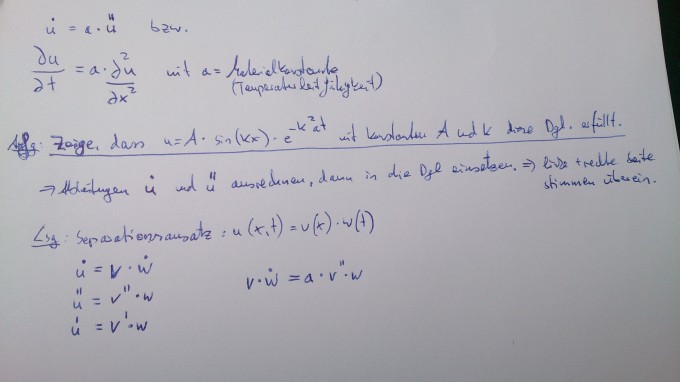 u̇ = a · ü bzw.
∂u/∂t = a · ∂²u/∂x² mit a = Materialkonstante
(Temperaturleitfähigkeit)
Afg: Zeige, dass u = A · sin(kx) · e^(-k²at) mit Konstanten A und k diese Dgl. erfüllt.
⇒ Ableitungen u̇ und ü ausrechnen, dann in die Dgl einsetzen. ⇒ linke + rechte Seite
stimmen überein.
Lsg: Separationsansatz: u(x,t) = v(x) · w(t)
u̇ = v · ẇ
v · ẇ = a · v'' · w
u'' = v'' · w
u' = v' · w